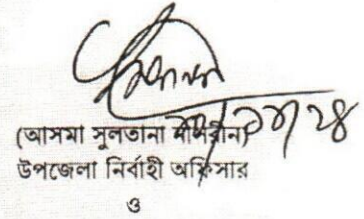 (আসমা সুলতানা নাসরীন)
উপজেলা নির্বাহী অফিসার
ও